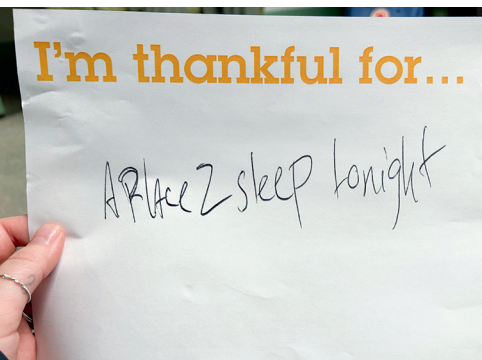 I'm thankful for...
A Place 2 sleep tonight